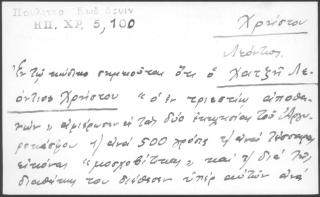 Πουλιτσα Κωδ. Δ
ΗΠ. ΧΡ 5, 100
Χρήστου
Λεόντιος
Ἐν τῷ κώδικι σημειοῦται ὅτι ὁ Χατζῆ Λε-
όντιος Χρήστου "ὁ ἐν τριεστίῳ ἀποθα-
νών ἀφιέρωσεν εἰς τὰς δύο ἐκκλησίας τοῦ Ἀργυ-
ροκάστρου ἀνά 500 γρόσια ἀνά τέσσαρας
εἰκόνας "μοσχοβίτικας" καί διά τῆς
διαθήκης του διέθεσεν ὑπέρ αὐτῶν ἀνά